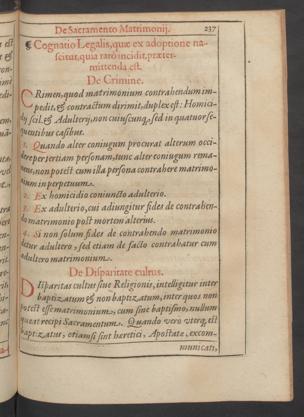 De Sacramento Matrimonij. 237
¶ Cognatio Legalis, quæ ex adoptione na-
scitur, quia rarò incidit, præter-
mittenda est.
De Crimine.
CRimen, quod matrimonium contrahendum im-
pedit, & contractum dirimit, duplex est: Homici-
dij scil. & Adulterij, non cuiuscunq, sed in quatuor se-
quentibus casibus.
1. Quando alter coniugum procurat alterum occi-
dere per tertiam personam, tunc alter coniugum rema-
nens, non potest cum illa persona contrahere matrimo-
nium in perpetuum.
2. Ex homicidio coniuncto adulterio.
3. Ex adulterio, cui adiungitur fides de contrahen-
do matrimonio post mortem alterius.
4. Si non solum fides de contrahendo matrimonio
detur adultero, sed etiam de facto contrahatur cum
adultero matrimonium.
De Disparitate cultus.
DIsparitas cultus siue Religionis, intelligitur inter
baptizatum & non baptizatum, inter quos non
potest esse matrimonium, cum sine baptismo, nullum
queat recipi Sacramentum. Quando vero vterq, est
baptizatus, etiamsi sint heretici, Apostatæ, excom-
municati,